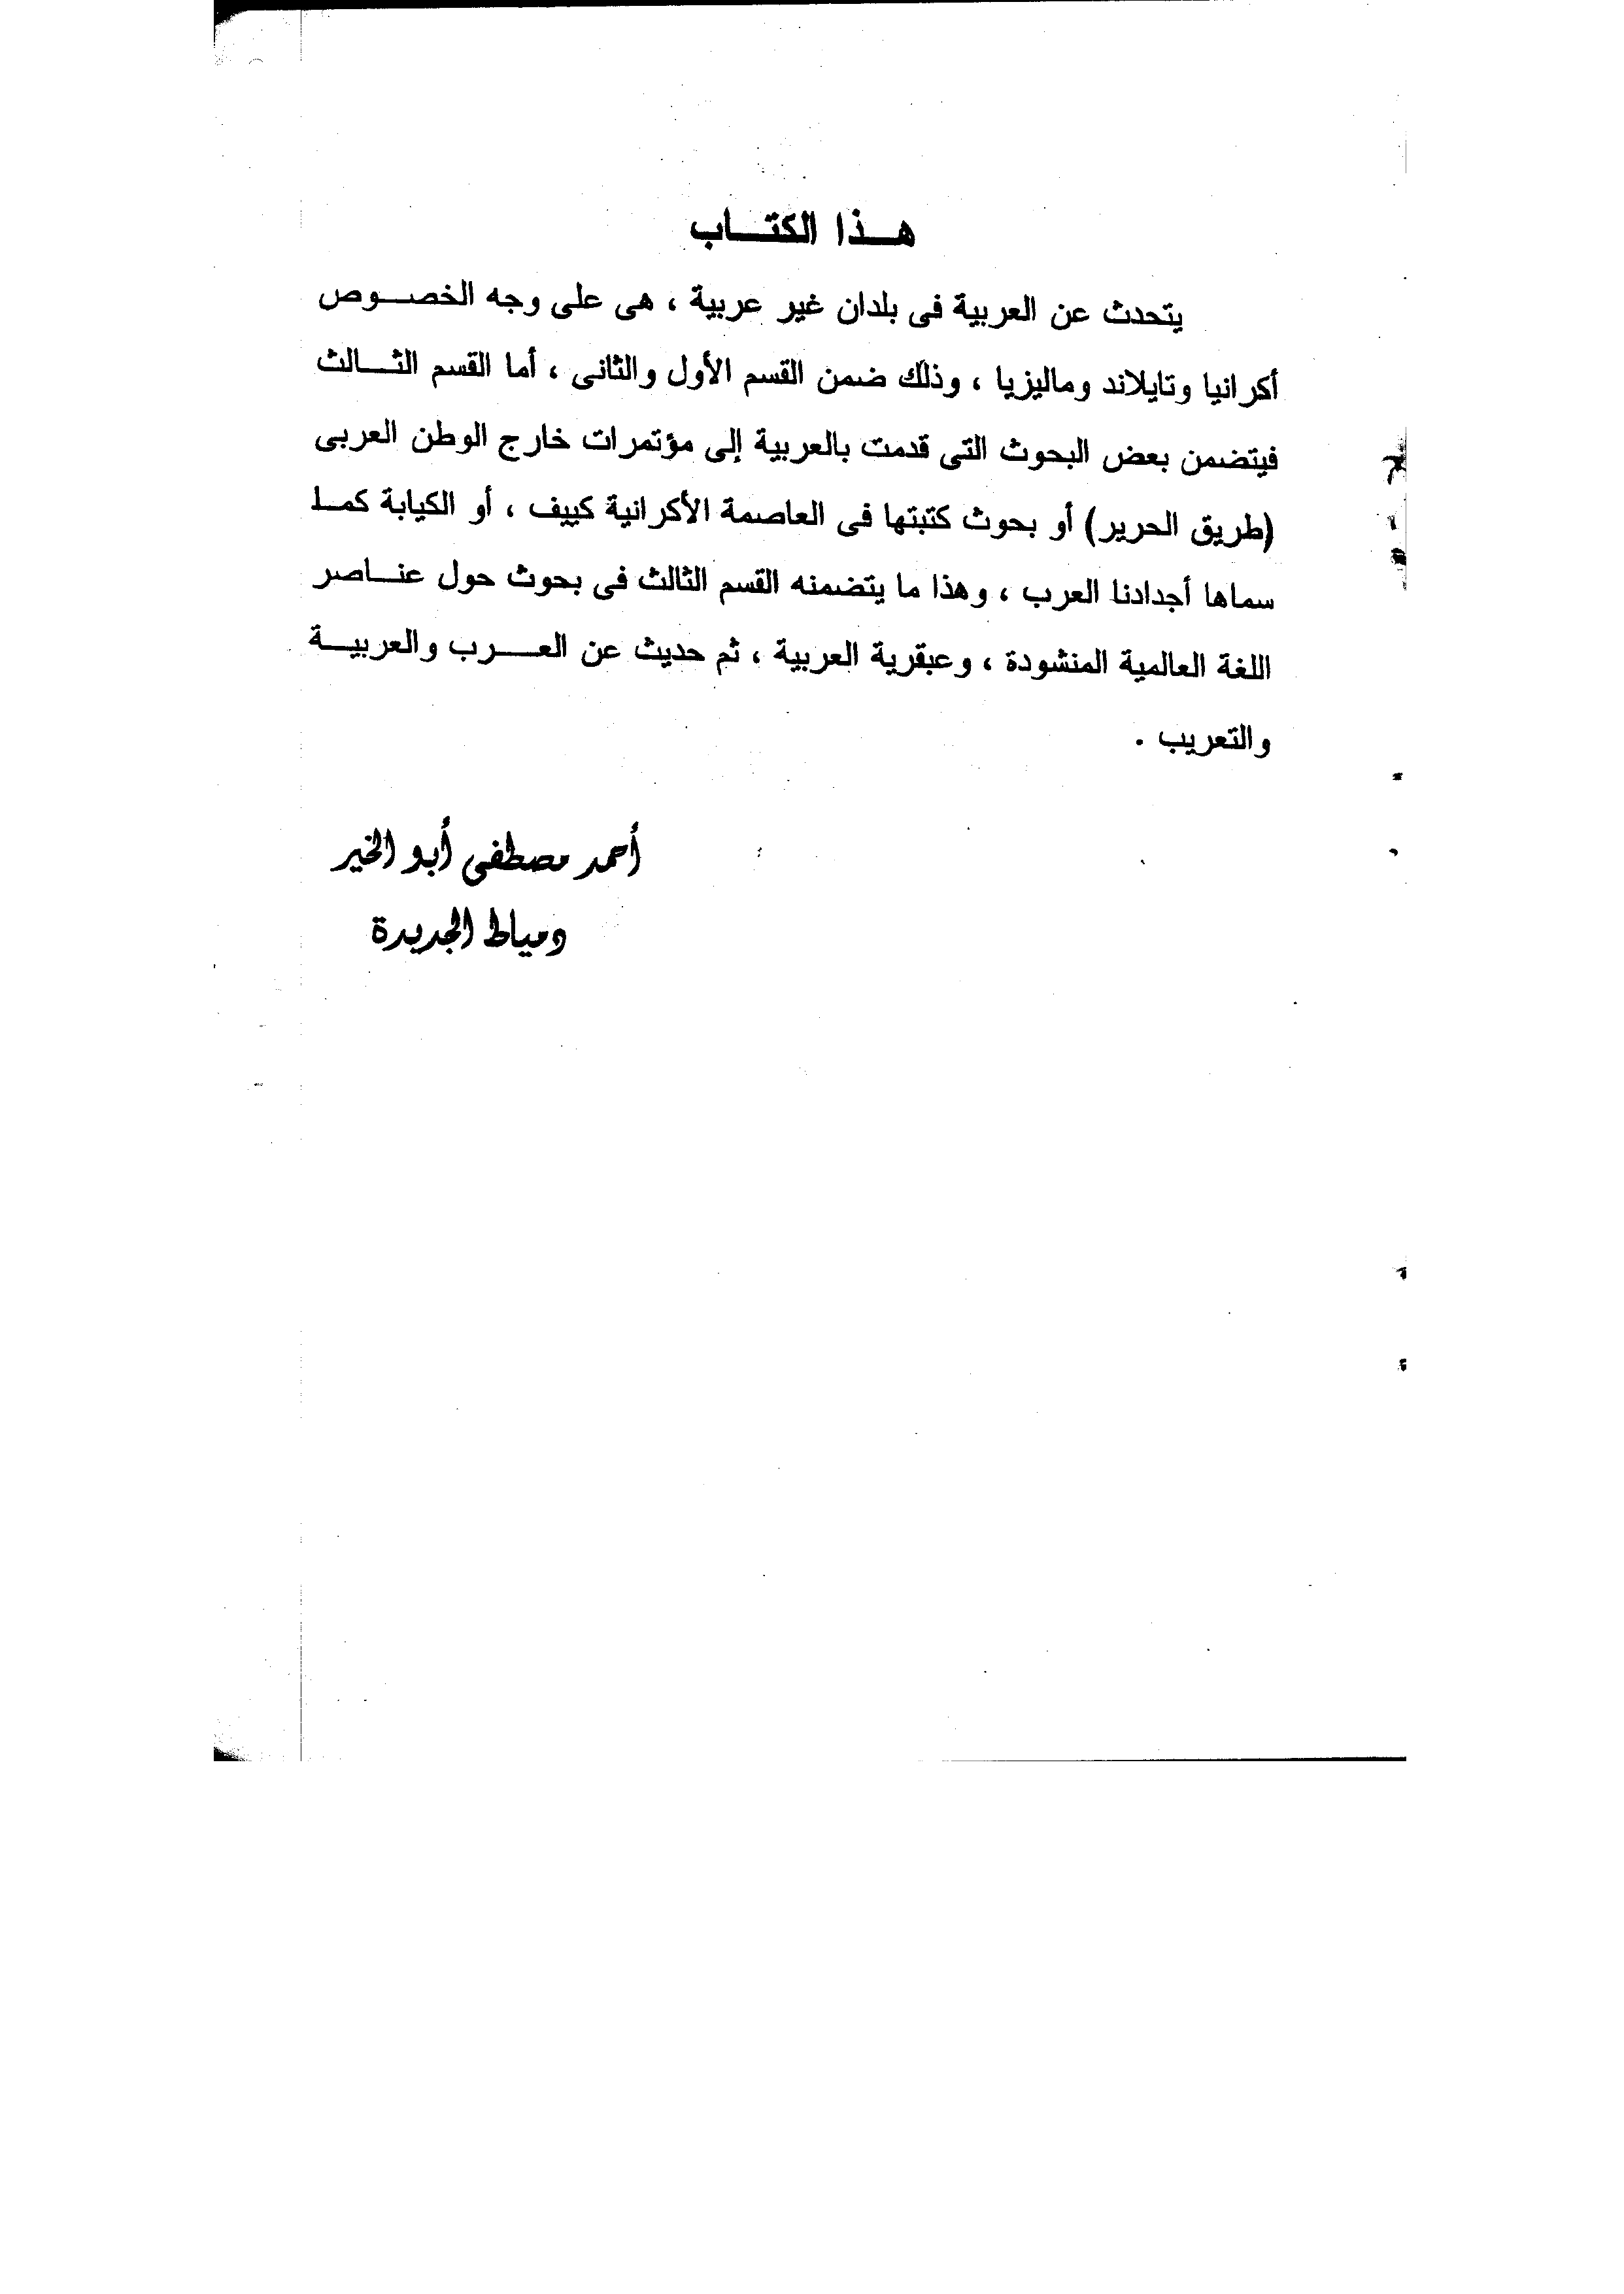 هذا الكتاب
يتحدث عن العربية فى بلدان غير عربية ، هى على وجه الخصوص
أكرانيا وتايلاند وماليزيا ، وذلك ضمن القسم الأول والثانى ، أما القسم الثالث
فيتضمن بعض البحوث التى قدمت بالعربية إلى مؤتمرات خارج الوطن العربى
(طريق الحرير) أو بحوث كتبتها فى العاصمة الأكرانية كييف ، أو الكيابة كما
سماها أجدادنا العرب ، وهذا ما يتضمنه القسم الثالث فى بحوث حول عناصر
اللغة العالمية المنشودة ، وعبقرية العربية ، ثم حديث عن العرب والعربية
والتعريب .
أحمد مصطفى أبو الخير
دمياط الجديدة